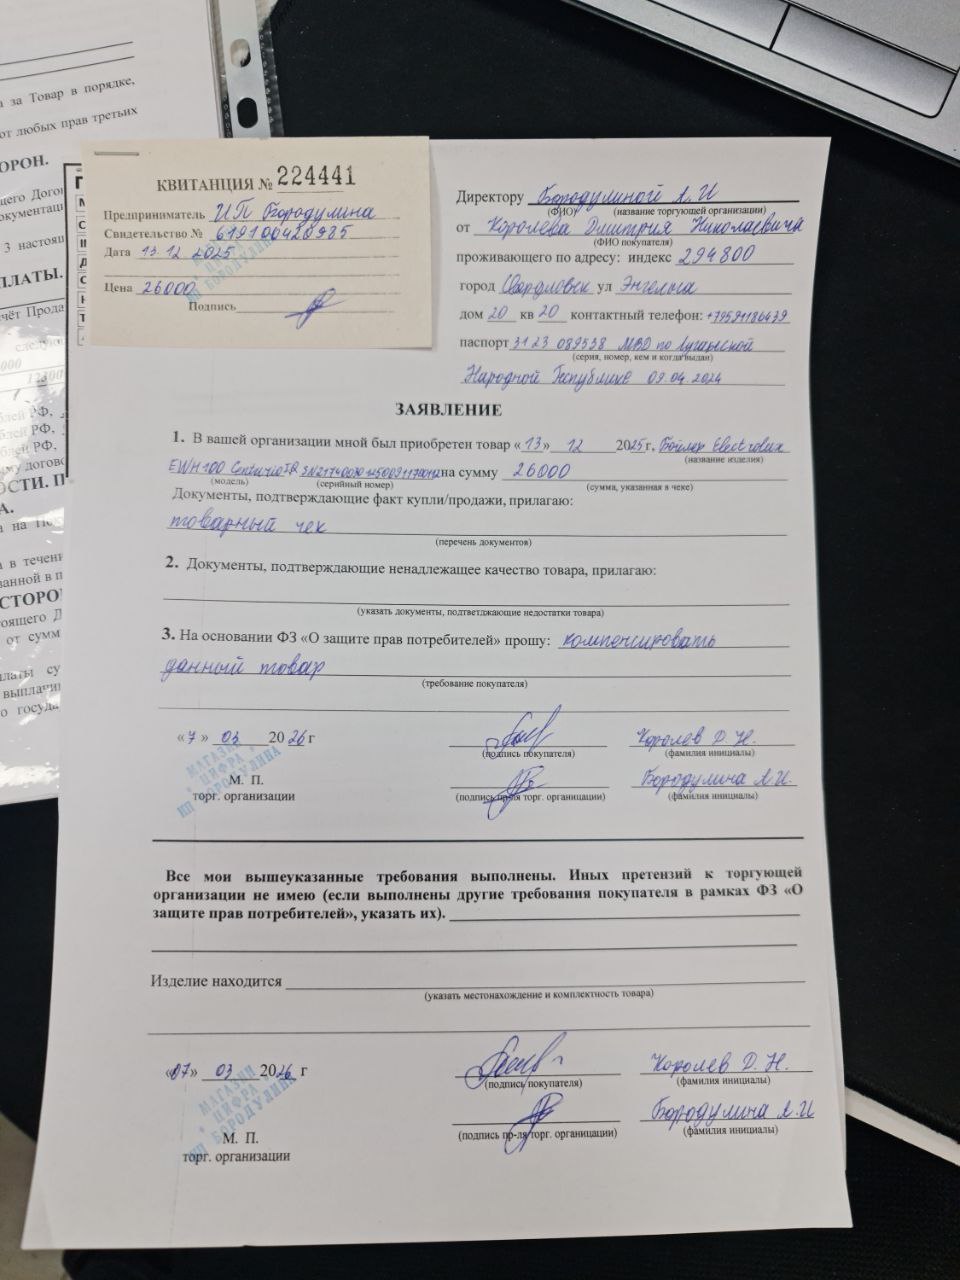 а за Товар в порядке,
от любых прав третьих
ОРОН.
3 настоящ
ПЛАТЫ.
чёт Прода
следующ
12300
блей РФ,
блей РФ,
му догово
ОСТИ. П
А.
а на Пос
а в течени
занной в п
СТОРО
тоящего Д
от сумм
платы су
выплачи
о госуда
КВИТАНЦИЯ № 224441
Предприниматель ИП Бородулина
Свидетельство № 619100420985
Дата 13.12.2025
Цена 26000
Подпись
МАГАЗИН
* ЦИФРА *
ИП БОРОДУЛИНА
Директору Бородулиной А.И
(ФИО) (название торгующей организации)
от Королева Дмитрия Николаевича
(ФИО покупателя)
проживающего по адресу: индекс 294800
город Свердловск ул Энгельса
дом 20 кв 20 контактный телефон: +79591186439
паспорт 3123 089538 МВД по Луганской
(серия, номер, кем и когда выдан)
Народной Республике 09.04.2024
ЗАЯВЛЕНИЕ
1. В вашей организации мной был приобретен товар «13» 12 2025г, Бойлер Electrolux
(название изделия)
EWH 100 Centurio на сумму 26000
(модель) (серийный номер) (сумма, указанная в чеке)
Документы, подтверждающие факт купли/продажи, прилагаю:
товарный чек
(перечень документов)
2. Документы, подтверждающие ненадлежащее качество товара, прилагаю:
(указать документы, подтветджающие недостатки товара)
3. На основании ФЗ «О защите прав потребителей» прошу: компенсировать
данный товар
(требование покупателя)
«7» 03 2026 г Королев Д. Н.
(подпись покупателя) (фамилия инициалы)
МАГАЗИН
* ЦИФРА *
ИП БОРОДУЛИНА
М. П. Бородулина А.И.
торг. организации (подпись пр-ля торг. органицации) (фамилия инициалы)
Все мои вышеуказанные требования выполнены. Иных претензий к торгующей
организации не имею (если выполнены другие требования покупателя в рамках ФЗ «О
защите прав потребителей», указать их).
Изделие находится
(указать местонахождение и комплектность товара)
«07» 03 2026 г Королев Д. Н.
(подпись покупателя) (фамилия инициалы)
МАГАЗИН
* ЦИФРА *
ИП БОРОДУЛИНА
Бородулина А.И
М. П. (подпись пр-ля торг. органицации) (фамилия инициалы)
торг. организации